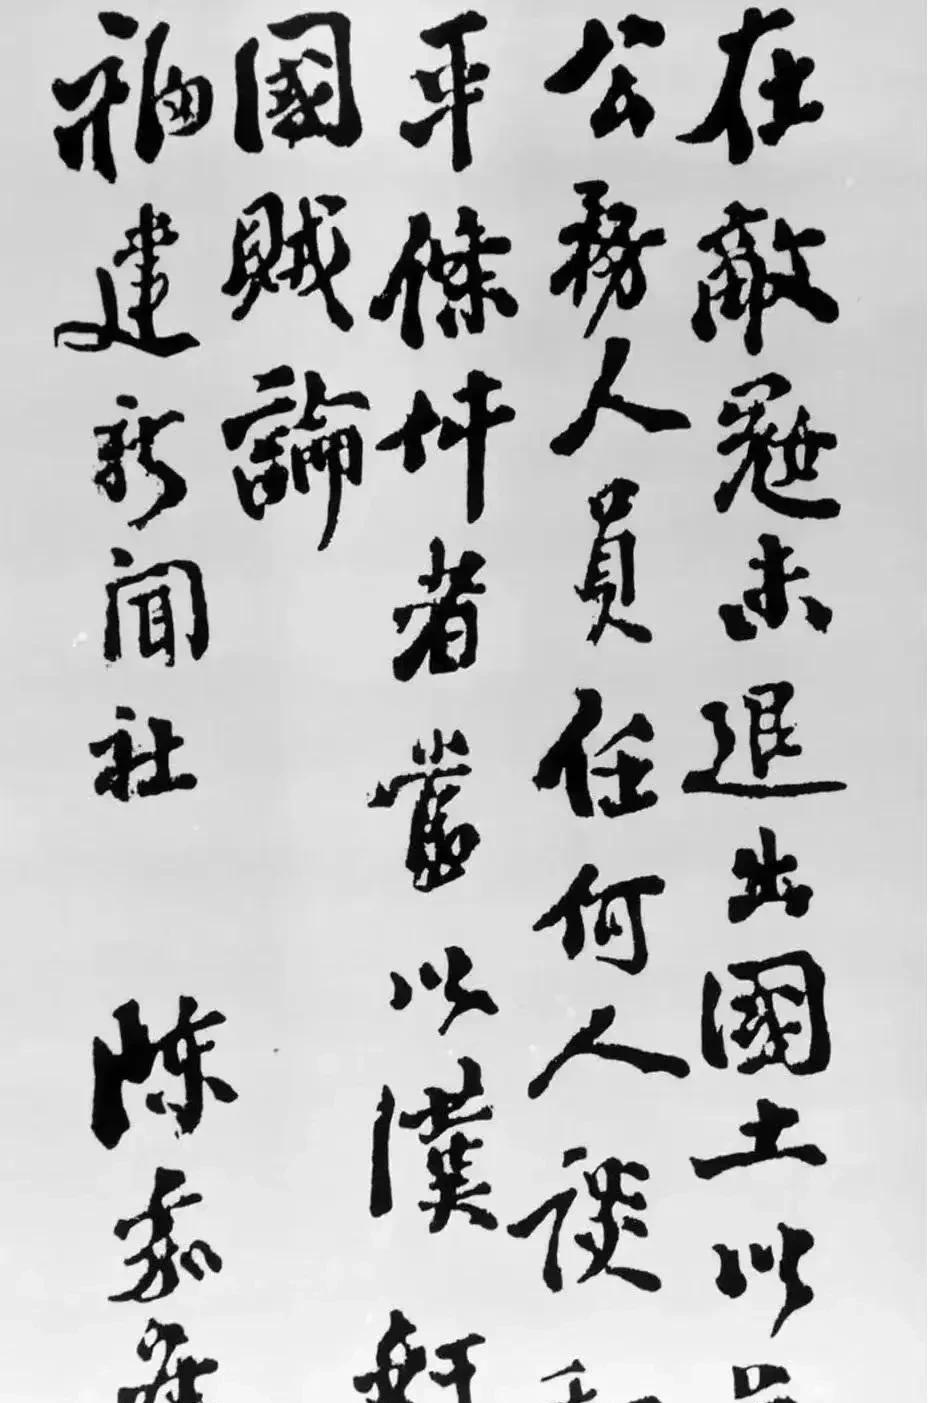 在敵寇未退出國土以
公務人員任何人談
平條件者當以漢奸
國賊論
福建新聞社 陳嘉庚